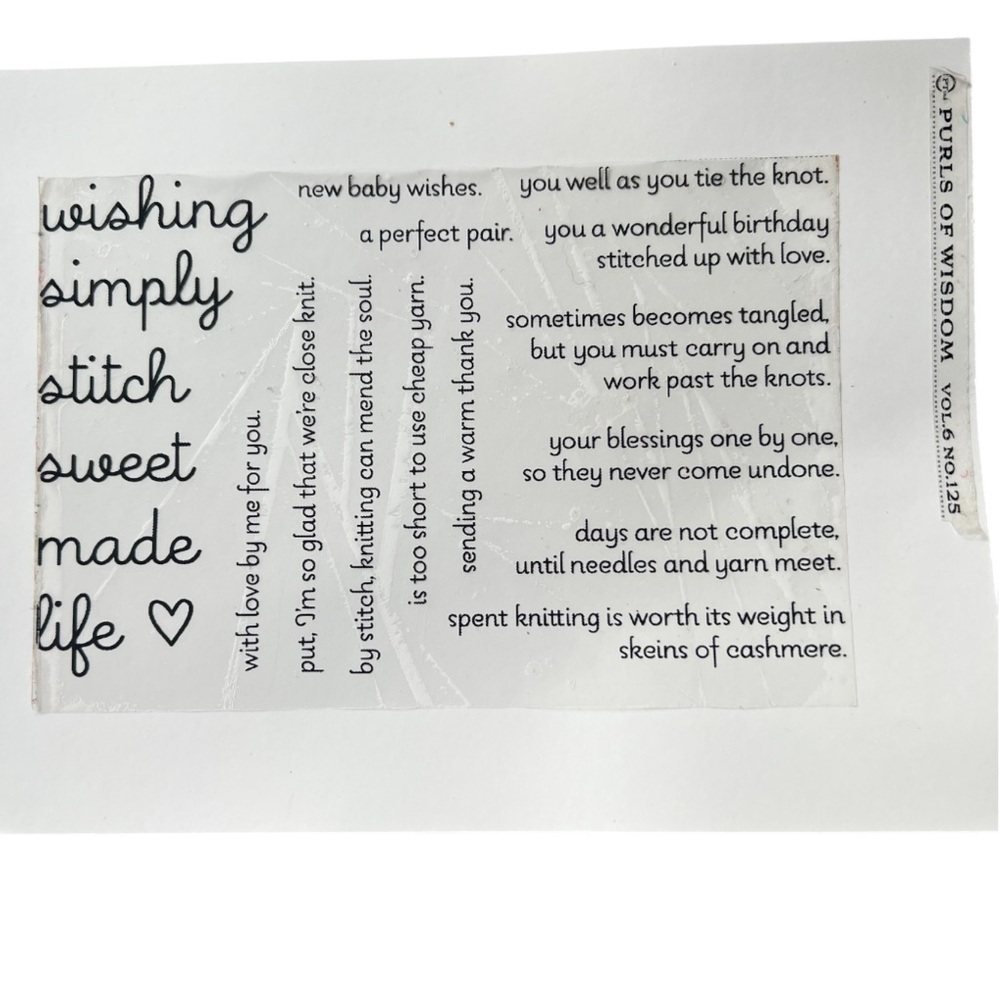 wishing
simply
stitch
sweet
made
life
new baby wishes.
a perfect pair.
you well as you tie the knot.
you a wonderful birthday
stitched up with love.
sometimes becomes tangled,
but you must carry on and
work past the knots.
your blessings one by one,
so they never come undone.
days are not complete,
until needles and yarn meet.
spent knitting is worth its weight in
skeins of cashmere.
with love by me for you.
put, I'm so glad that we're close knit.
by stitch, knitting can mend the soul.
is too short to use cheap yarn.
sending a warm thank you.
PURLS OF WISDOM VOL.6 NO.125